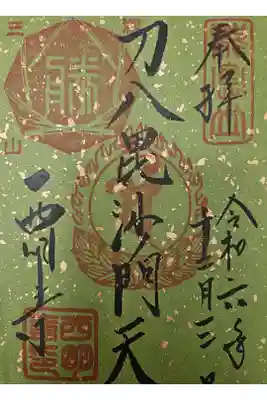 奉拝
令和六年
十一月三日
刀八毘沙門天
西明寺
勝